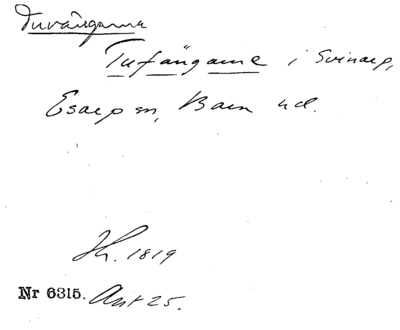 Duvängarna
Tufängarne i Svinarp,
Esarp sn, Bara hd.
Jh. 1819
Nr 6315. Akt 25.